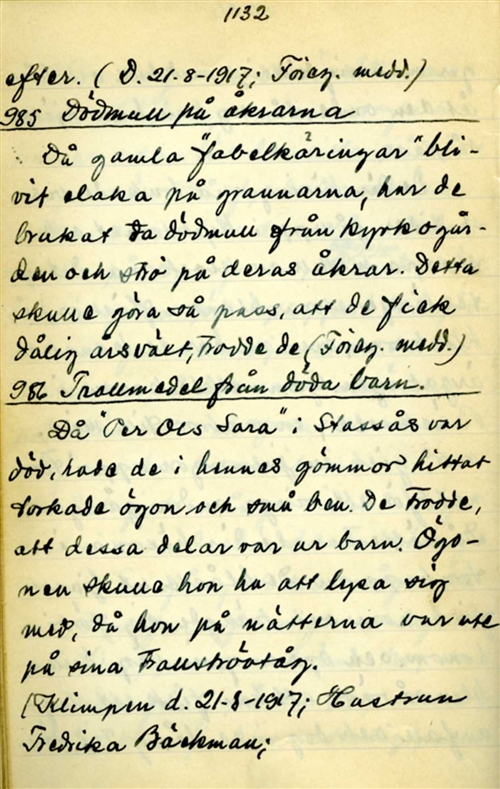 1132
efter. (D. 21-8-1917; Föreg. medd.)
985 Dödmull på åkrarna
Då gamla "fabelkäringar" bli-
vit elaka på grannarna, har de
brukat ta dödmull från kyrkogår-
den och strö på deras åkrar. Detta
skulle göra så pass, att de fick
dålig årsväxt, trodde de (Föreg. medd.)
986 Trollmedel från döda barn.
Då "Per Ols Sara" i Stassås var
död, hade de i hennes gömmor hittat
torkade ögon och små ben. De trodde,
att dessa delar var ur barn. Ögo-
nen skulle hon ha att lysa sig
med, då hon på nätterna var ute
på sina trollstråtåg.
(Klimpen d. 21-8-1917; Hustrun
Fredrika Bäckman;